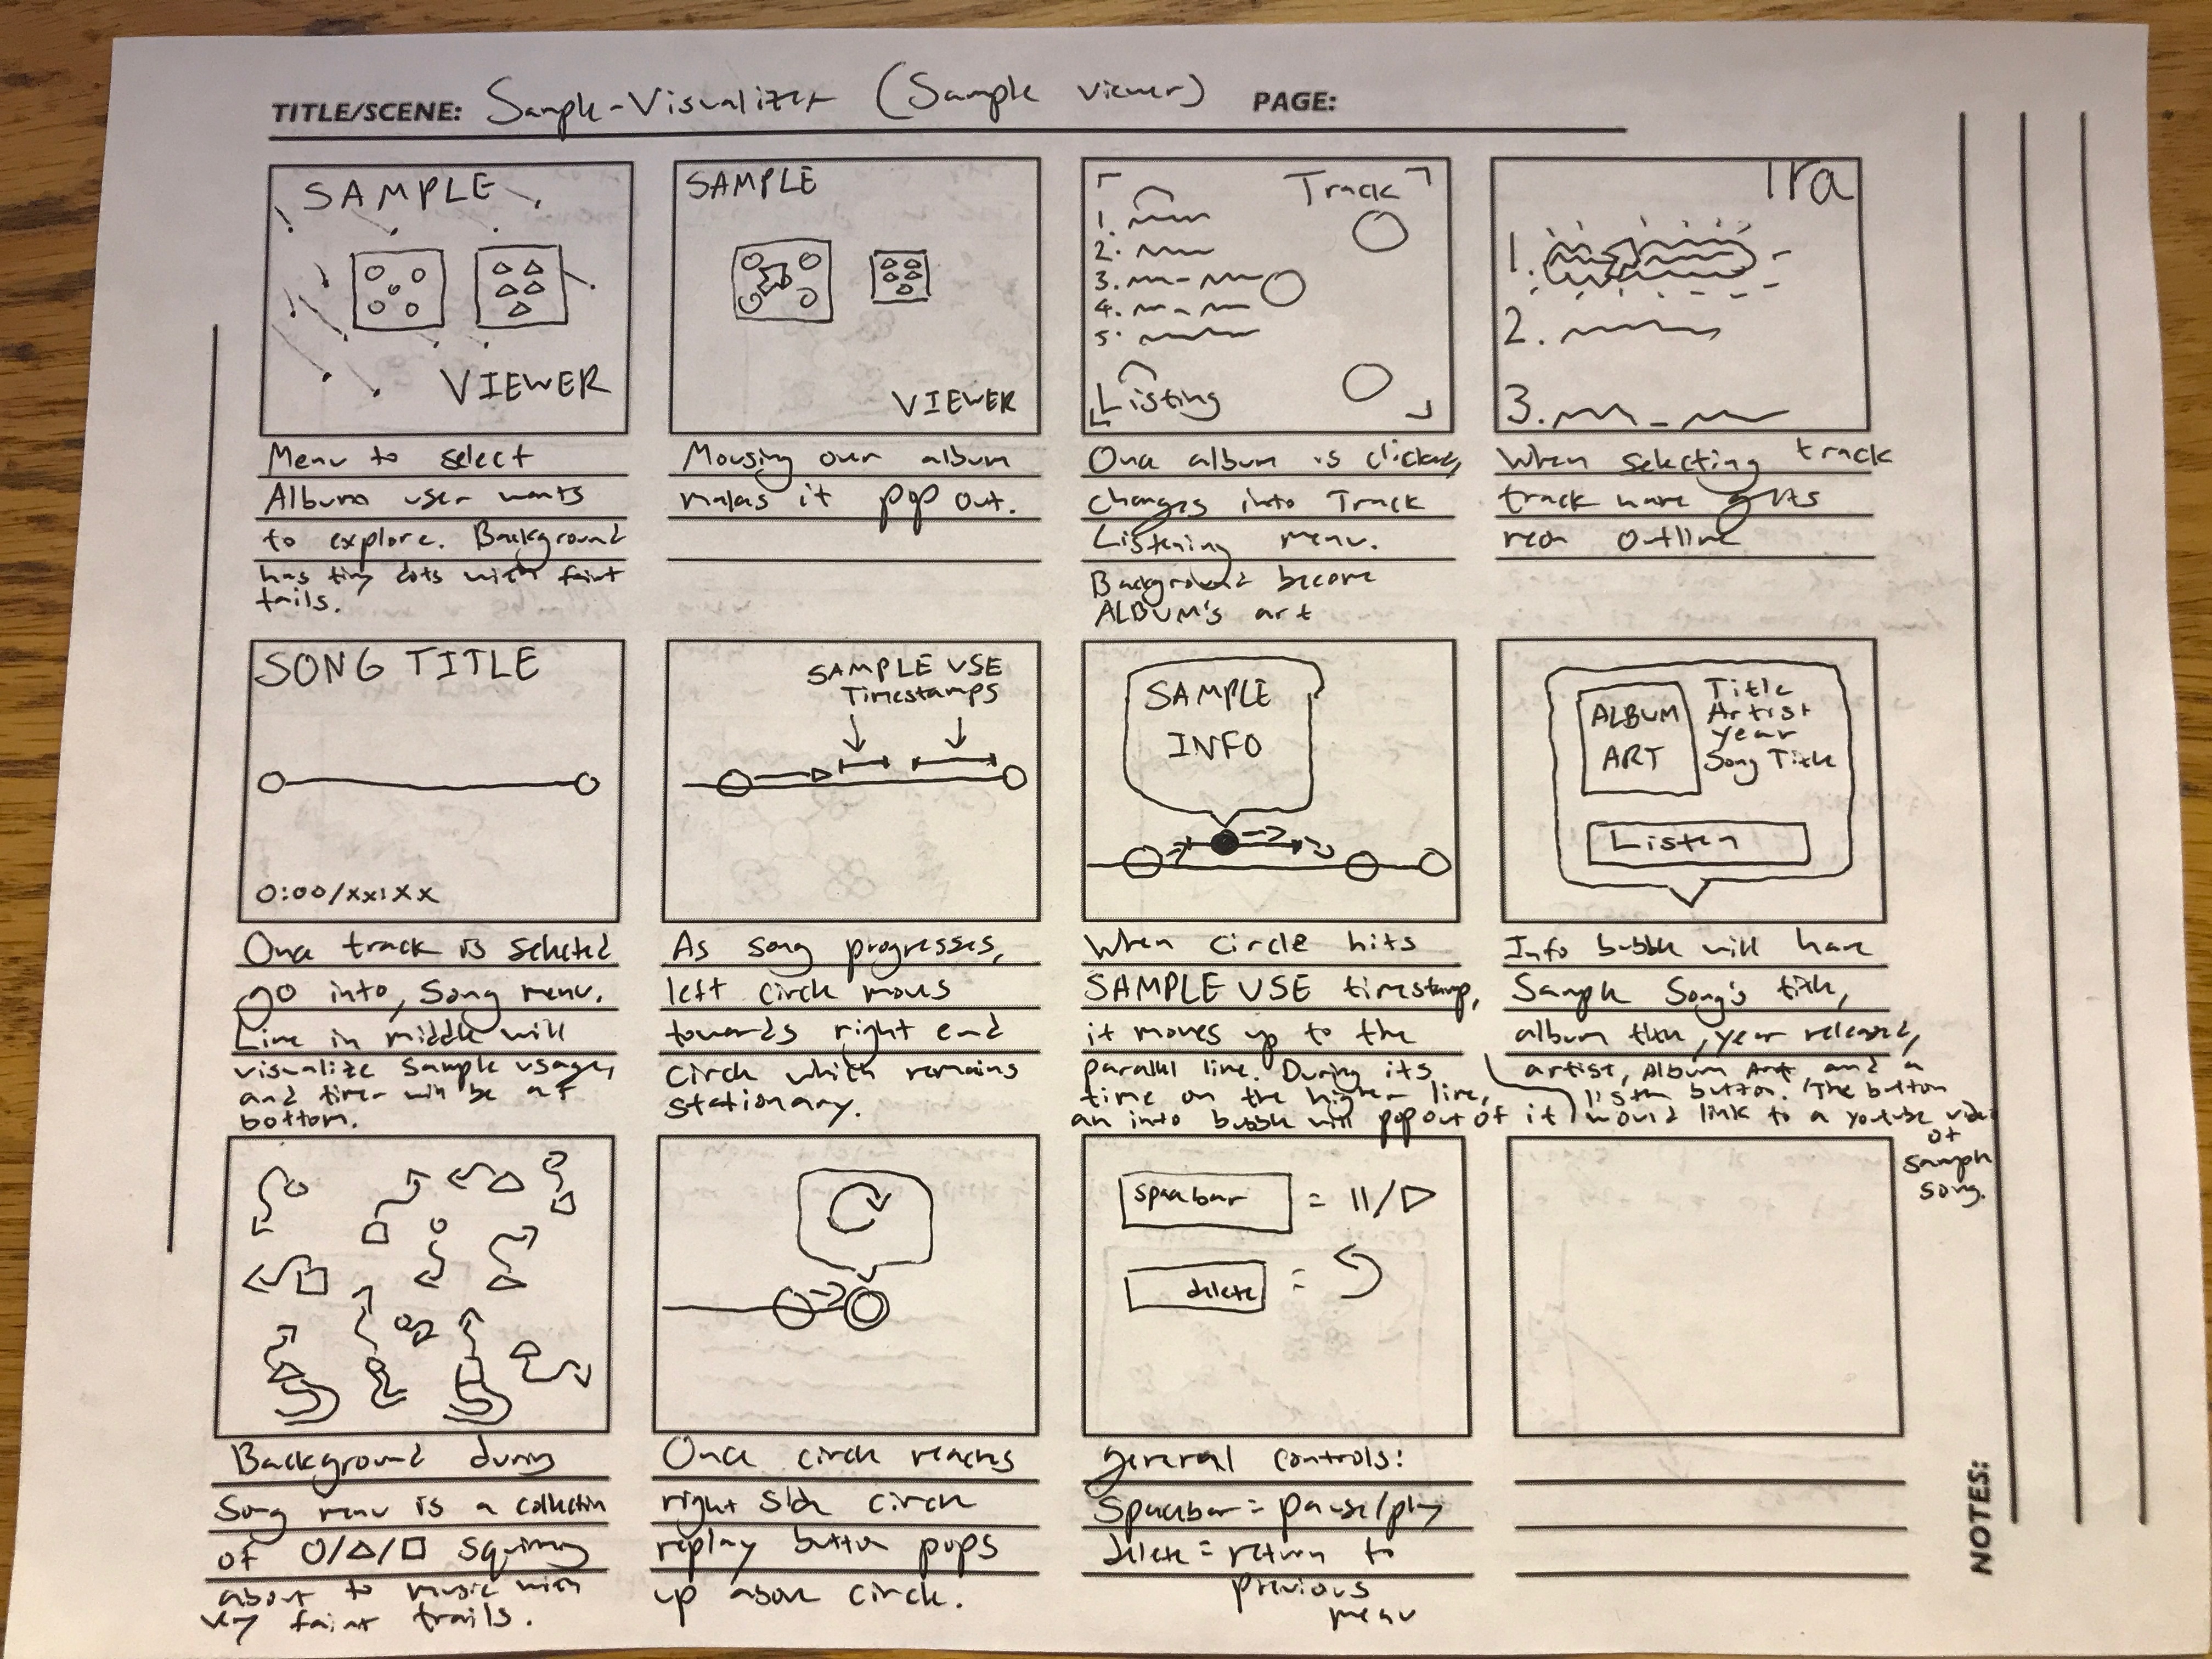 TITLE/SCENE: Sample-Visualizer (Sample viewer) PAGE:
SAMPLE
VIEWER
Menu to select
Album user wants
to explore. Background
has tiny dots with faint
trails.
SAMPLE
VIEWER
Mousing over album
makes it pop out.
Track
1.
2.
3.
4.
5.
Listing
Once album is clicked,
changes into Track
Listening menu.
Background become
ALBUM's art
Tra
1.
2.
3.
When selecting track
track name gets
neon outline
SONG TITLE
0:00/xx:xx
One track is selected
go into, Song menu.
Line in middle will
visualize sample usages,
and timer will be at
bottom.
SAMPLE USE
Timestamps
As song progresses,
left circle moves
towards right end
circle which remains
stationary.
SAMPLE
INFO
When circle hits
SAMPLE USE timestamp,
it moves up to the
parallel line. During its
time on the higher line,
an info bubble will pop out of it
ALBUM
ART
Title
Artist
Year
Song Title
Listen
Info bubble will have
Sample Song's title,
album title, year released,
artist, album art and a
listen button. (The button
would link to a youtube video
of
sample
song.
Background during
Song menu is a collection
of O/△/□ squirming
about to music with
very faint trails.
Once circle reaches
right side circle
replay button pops
up above circle.
spacebar = II/▷
delete =
general controls:
Spacebar = pause/play
delete = return to
previous
menu
NOTES: